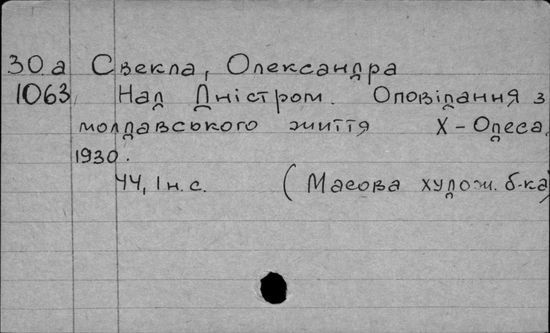 30а Свекла, Олександра
1063 Над Дністром. Оповідання з
молдавського життя Х-Одеса,
1930.
44, Iн.с. (Масова худож. б-ка)